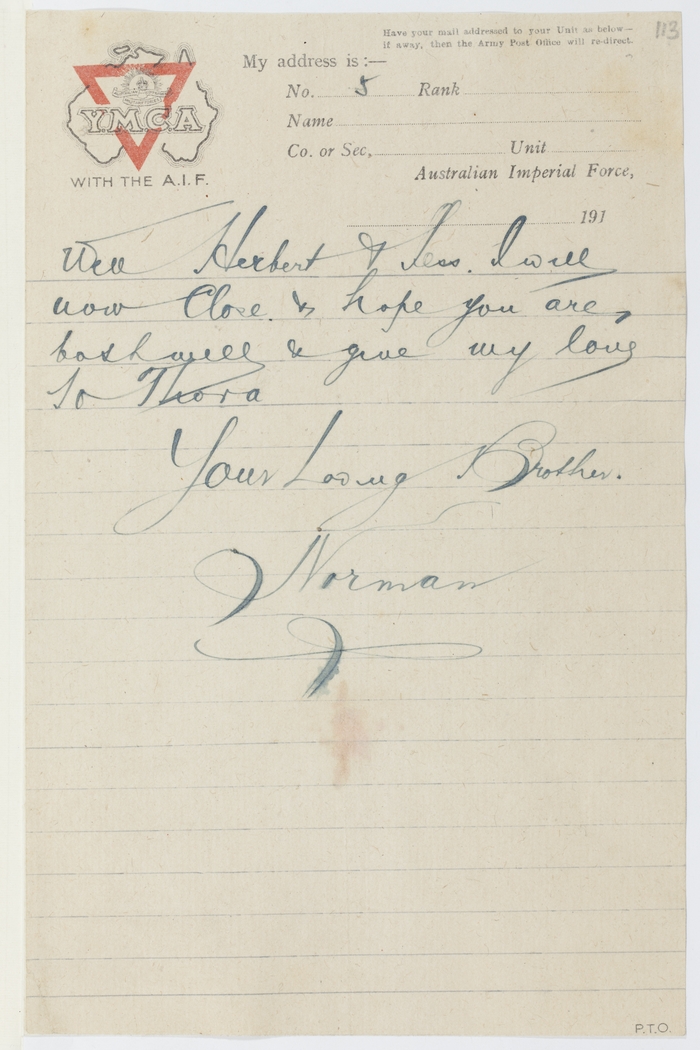 113
Have your mail addressed to your Unit as below—
if away, then the Army Post Office will re-direct.
My address is :—
No. 5 Rank
Name
Co. or Sec, Unit
Australian Imperial Force,
191
Y.M.C.A
WITH THE A.I.F.
Well Herbert & Jess. I will
now Close & hope you are,
both well & give my love
to Thora
Your Loving Brother.
Norman
P.T.O.